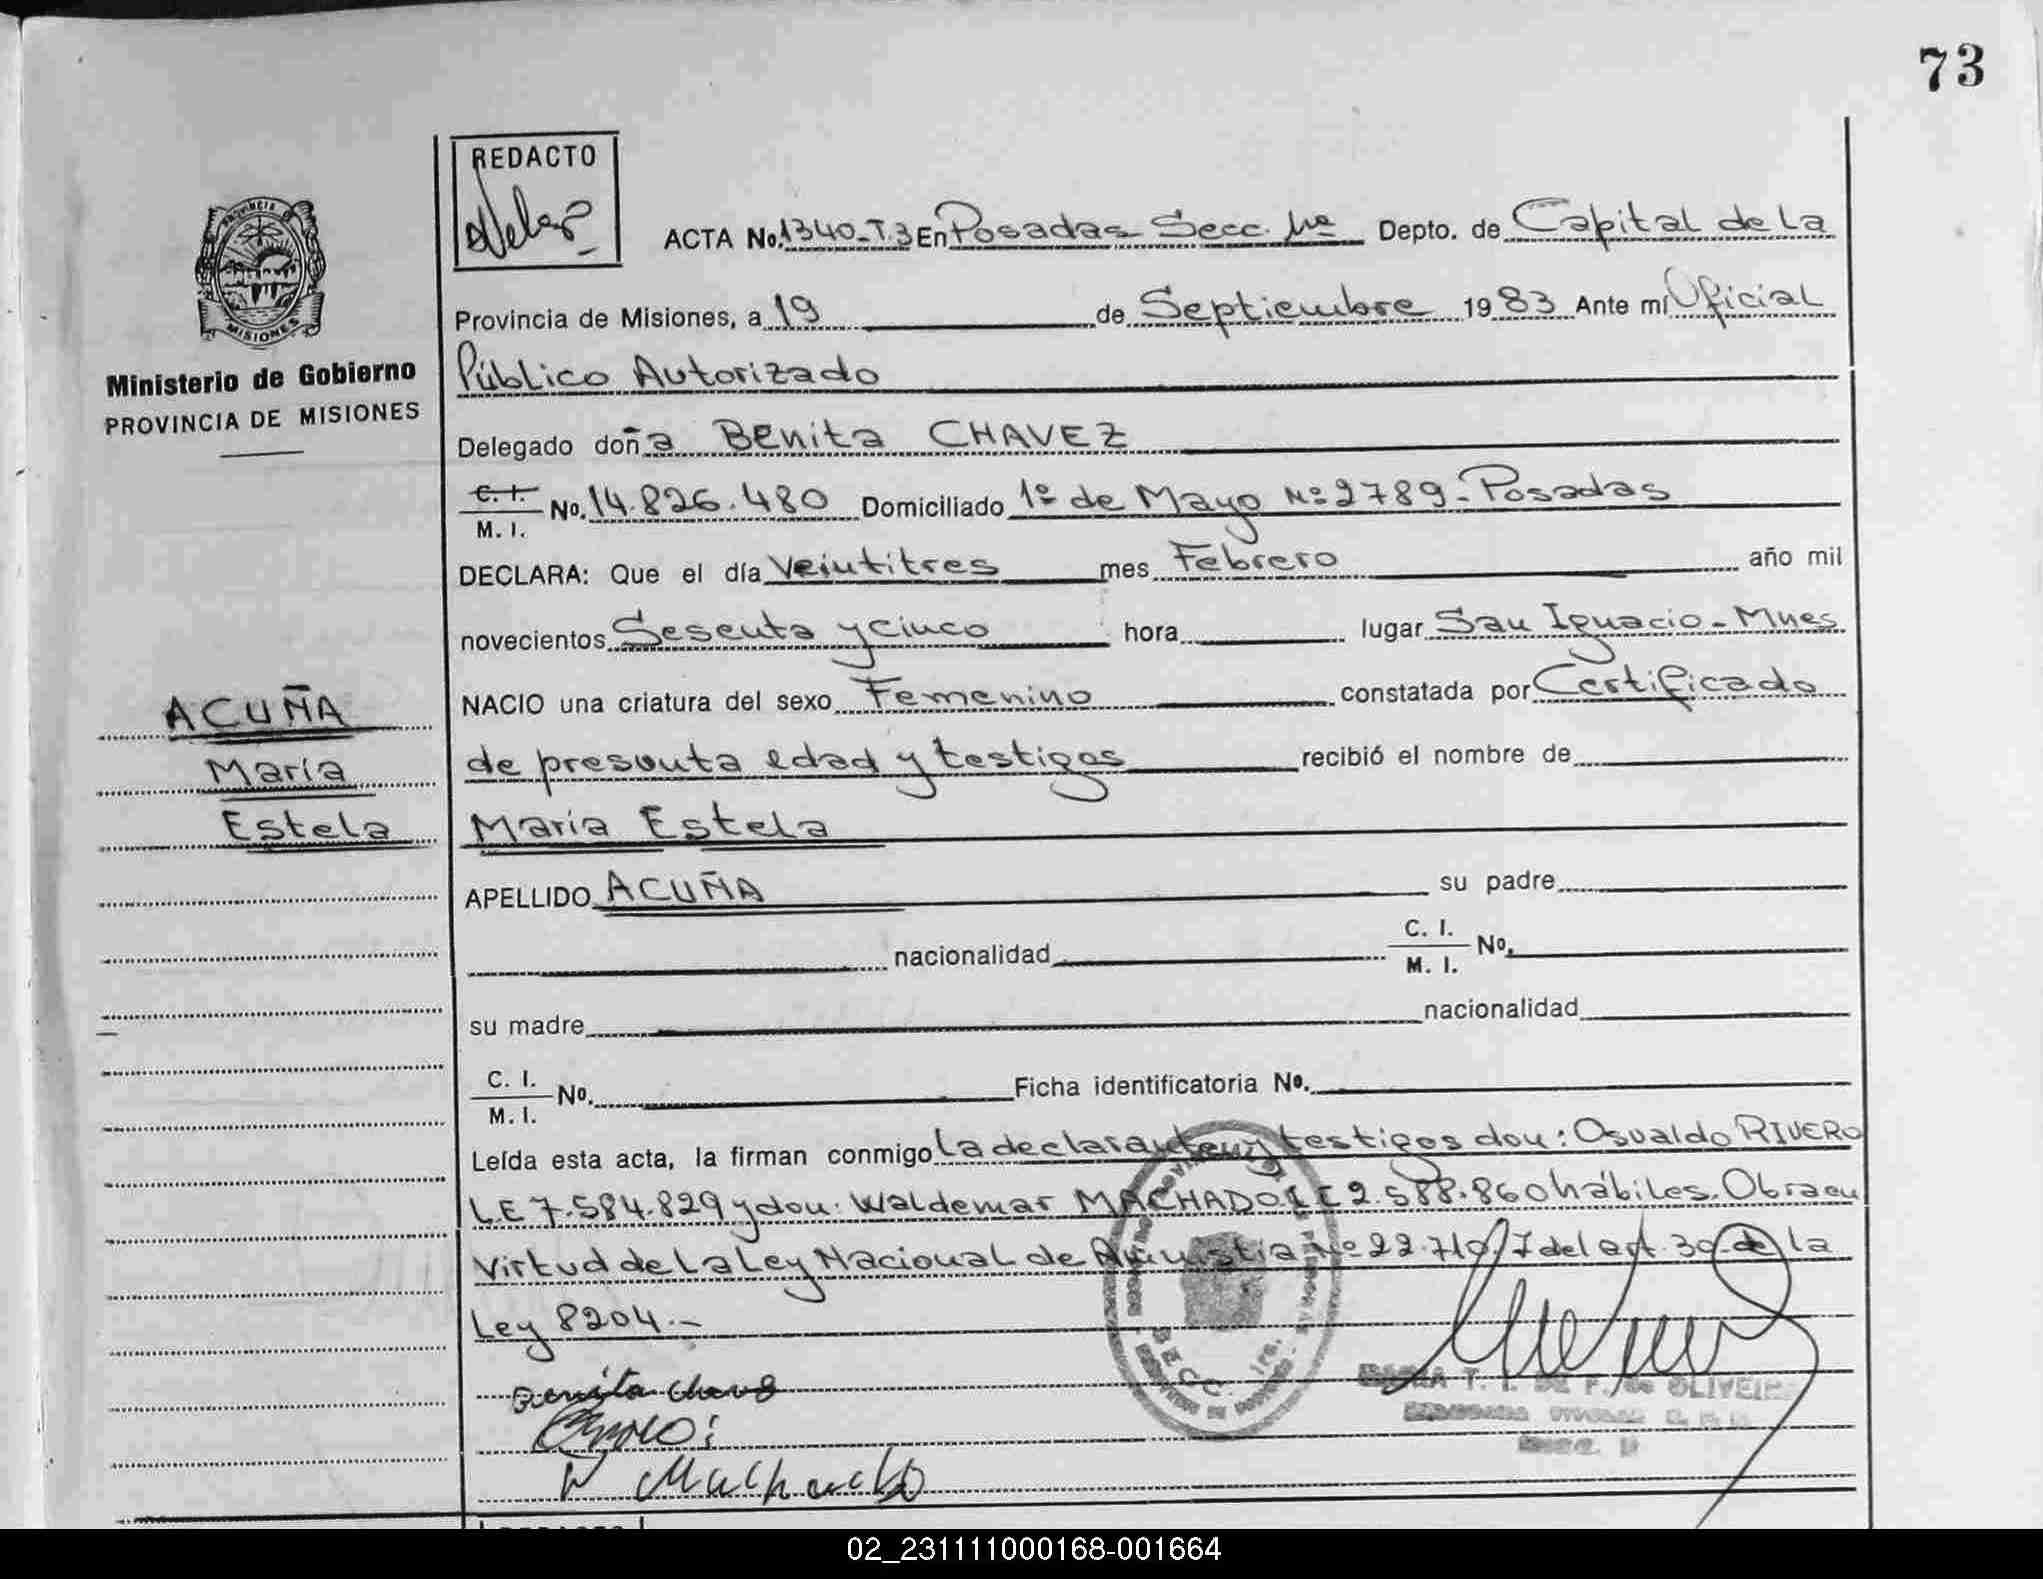 73
REDACTO
PROVINCIA D
MISIONES
Ministerio de Gobierno
PROVINCIA DE MISIONES
ACUÑA
María
Estela
ACTA No. 1340-T.3 En Posadas Secc. 1ra Depto. de Capital de La
Provincia de Misiones, a 19 de Septiembre 1983 Ante mí Oficial
Público Autorizado
Delegado doña Benita CHAVEZ
C. I. / M. I. No. 14.826.480 Domiciliado 1º de Mayo Nº 2789 - Posadas
DECLARA: Que el día veintitres mes Febrero año mil
novecientos Sesenta y cinco hora lugar San Ignacio - Mnes
NACIO una criatura del sexo Femenino constatada por Certificado
de presunta edad y testigos recibió el nombre de
María Estela
APELLIDO ACUÑA su padre
nacionalidad C. I. / M. I. No.
su madre nacionalidad
C. I. / M. I. No. Ficha identificatoria No.
Leída esta acta, la firman conmigo La declarante y testigos don: Osvaldo RIVERO
L.E 7.584.829 y don: Waldemar MACHADO LE 2.588.860 hábiles. Obra en
Virtud de La Ley Nacional de Amnistia Nº 22.710, 7 del art. 30 de la
Ley 8204.-
Benita Chavez
W Machado
SECC. 1ra.
T. I. DE F. de OLIVEIRA
02_231111000168-001664